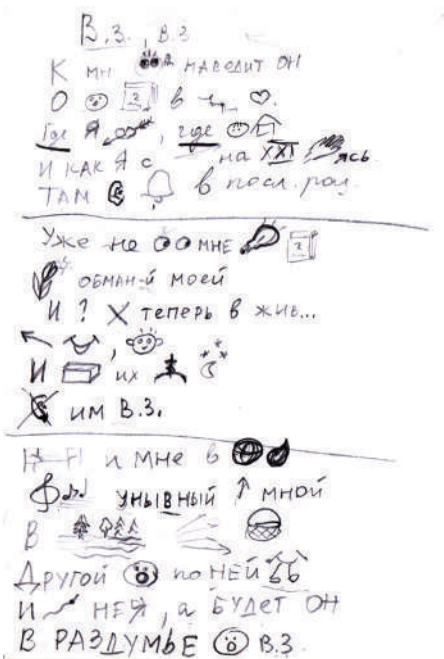 В.З., В.З
К мн наводит он
О в
Где Я, где
И КАК Я с на ясь
ТАМ в посл. раз.
Уже не мне
ОБМАН-й моей
И ? Х теперь в жив...
И их
им В.З.
и мне в
унывный ↑ мной
В
Другой по ней
И не Я, а БУДЕТ ОН
В РАЗДУМЬЕ В.З.